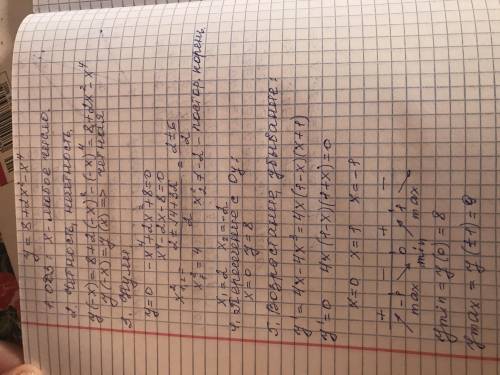 y = 8 + 2x² - x⁴
1. ОДЗ: x - любое число.
2. Чётность, нечётность
y(-x) = 8 + 2(-x)² - (-x)⁴ = 8 + 2x² - x⁴
y(-x) = y(x) => чётная
3. Нули
y=0 -x⁴ + 2x² + 8 = 0
x⁴ - 2x - 8 = 0
x² = 2 ± √4+32 / 2 = 2 ± 6 / 2
x² = 4 x² ≠ -2 - постор. корень
x₁ = 2 x₂ = -2
4. Пересечение с Oy:
x = 0 y = 8
5. Возрастание, убывание:
y' = 4x - 4x³ = 4x(1-x)(x+1)
y' = 0 4x(1-x)(1+x) = 0
x = 0 x = 1 x = -1
+ - + -
-1 0 1
max min max
y min = y(0) = 8
y max = y(±1) = 9